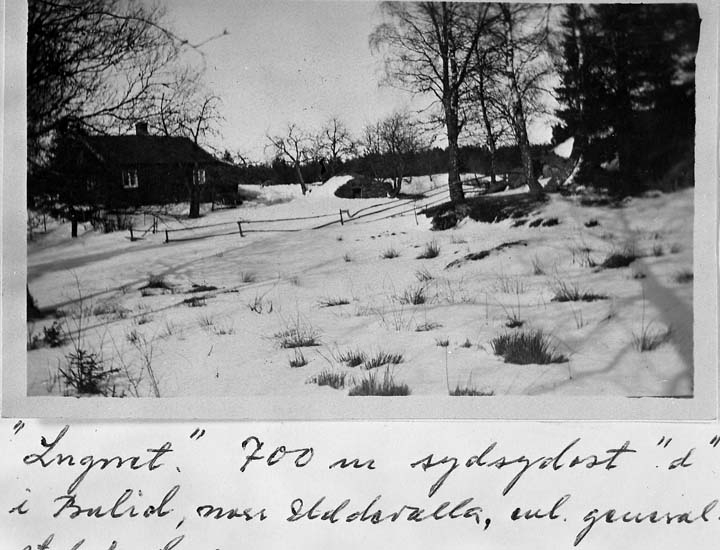 "Lugnet." 700 m sydsydost "d"
i Bulid, norr Uddevalla, enl. general-